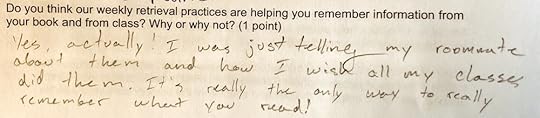 Do you think our weekly retrieval practices are helping you remember information from
your book and from class? Why or why not? (1 point)
Yes, actually! I was just telling my roommate
about them and how I wish all my classes
did them. It's really the only way to really
remember what you read!